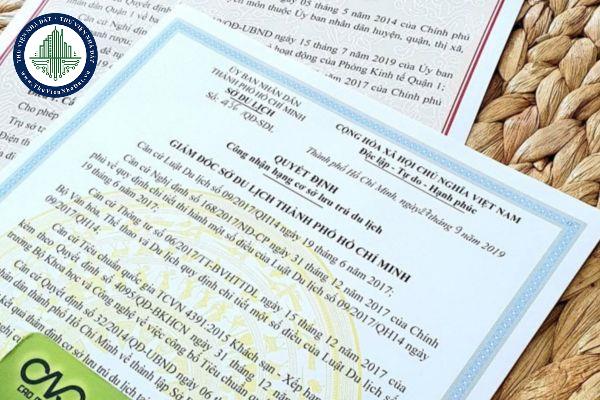 THƯ VIỆN NHÀ ĐẤT
www.ThuVienNhaDat.vn
03 tháng 5 năm 2014 của Chính phủ
môn thuộc Ủy ban nhân dân huyện, quận, thị xã,
QĐ-UBND ngày 15 tháng 7 năm 2019 của Ủy ban
hoạt động của Phòng Kinh tế Quận 1;
năm 2017 của Chính phủ
ỦY BAN NHÂN DÂN
THÀNH PHỐ HỒ CHÍ MINH
SỞ DU LỊCH
Số: 436 /QĐ-SDL
CỘNG HÒA XÃ HỘI CHỦ NGHĨA VIỆT NAM
Độc lập - Tự do - Hạnh phúc
Thành phố Hồ Chí Minh, ngày tháng 9 năm 2019
QUYẾT ĐỊNH
Công nhận hạng cơ sở lưu trú du lịch
GIÁM ĐỐC SỞ DU LỊCH THÀNH PHỐ HỒ CHÍ MINH
Căn cứ Luật Du lịch số 09/2017/QH14 ngày 19 tháng 6 năm 2017;
Căn cứ Nghị định số 168/2017/NĐ-CP ngày 31 tháng 12 năm 2017 của Chính
phủ về quy định chi tiết thi hành một số điều của Luật Du lịch số 09/2017/QH14 ngày
19 tháng 6 năm 2017;
Căn cứ Thông tư số 06/2017/TT-BVHTTDL ngày 15 tháng 12 năm 2017 của
Bộ Văn hóa, Thể thao và Du lịch quy định chi tiết một số điều của Luật Du lịch số
09/2017/QH14;
Căn cứ Tiêu chuẩn quốc gia TCVN 4391:2015 Khách sạn - Xếp hạng
kèm theo Quyết định số 4095/QĐ-BKHCN ngày 31 tháng 12 năm
trưởng Bộ Khoa học và Công nghệ về việc công bố Tiêu chuẩn quốc
Căn cứ Quyết định số 32/2014/QĐ-UBND ngày 06
nhân dân thành phố Hồ Chí Minh về thành lập Sở
kết quả thẩm định cơ sở lưu trú du lịch